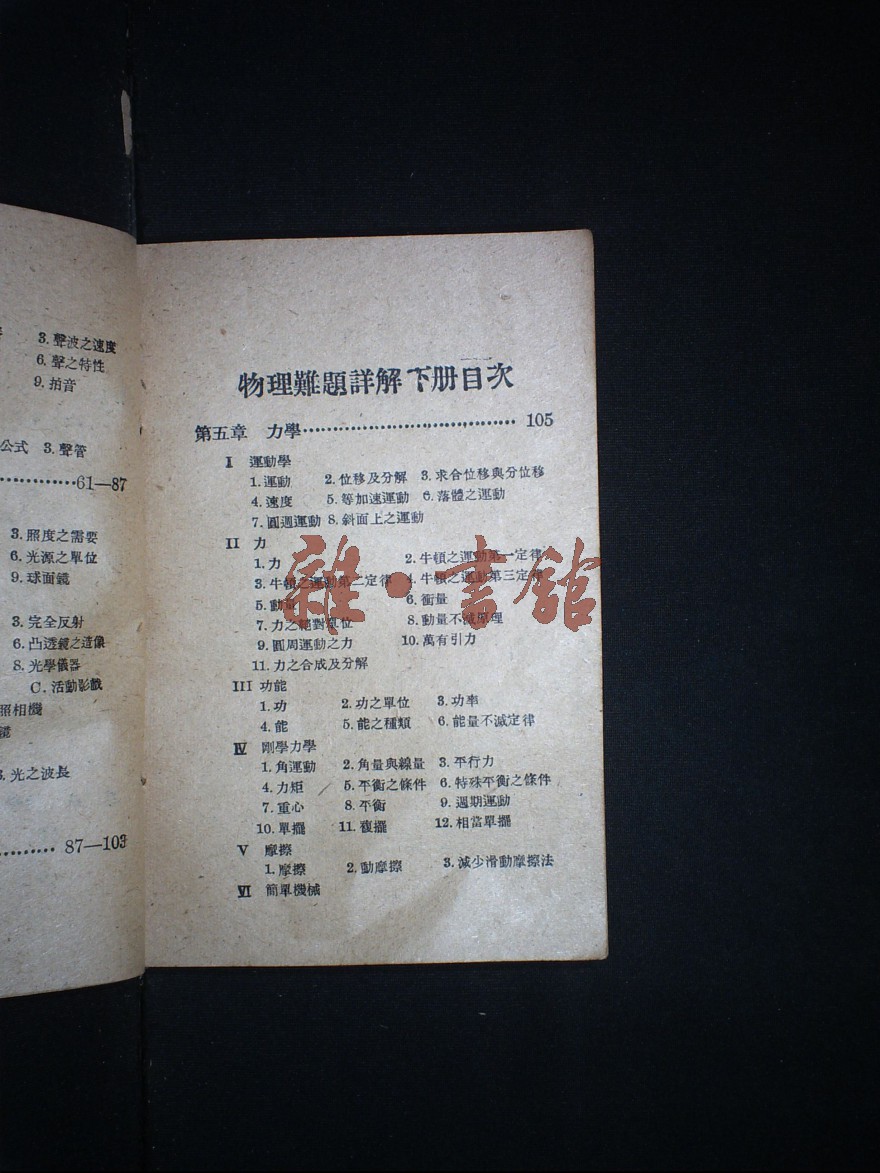 3. 聲波之速度
6. 聲之特性
9. 拍音
公式 3. 聲管
61—87
3. 照度之需要
6. 光源之單位
9. 球面鏡
3. 完全反射
6. 凸透鏡之造像
8. 光學儀器
C. 活動影戲
照相機
鏡
3. 光之波長
87—103
物理難題詳解下册目次
第五章 力學 105
I 運動學
1. 運動 2. 位移及分解 3. 求合位移與分位移
4. 速度 5. 等加速運動 6. 落體之運動
7. 圓週運動 8. 斜面上之運動
II 力
1. 力 2. 牛頓之運動第一定律
3. 牛頓之運動第二定律 4. 牛頓之運動第三定律
5. 動量 6. 衝量
7. 力之絕對單位 8. 動量不滅原理
9. 圓周運動之力 10. 萬有引力
11. 力之合成及分解
III 功能
1. 功 2. 功之單位 3. 功率
4. 能 5. 能之種類 6. 能量不滅定律
IV 剛學力學
1. 角運動 2. 角量與線量 3. 平行力
4. 力矩 5. 平衡之條件 6. 特殊平衡之條件
7. 重心 8. 平衡 9. 週期運動
10. 單擺 11. 複擺 12. 相當單擺
V 摩擦
1. 摩擦 2. 動摩擦 3. 減少滑動摩擦法
VI 簡單機械
雜·書館